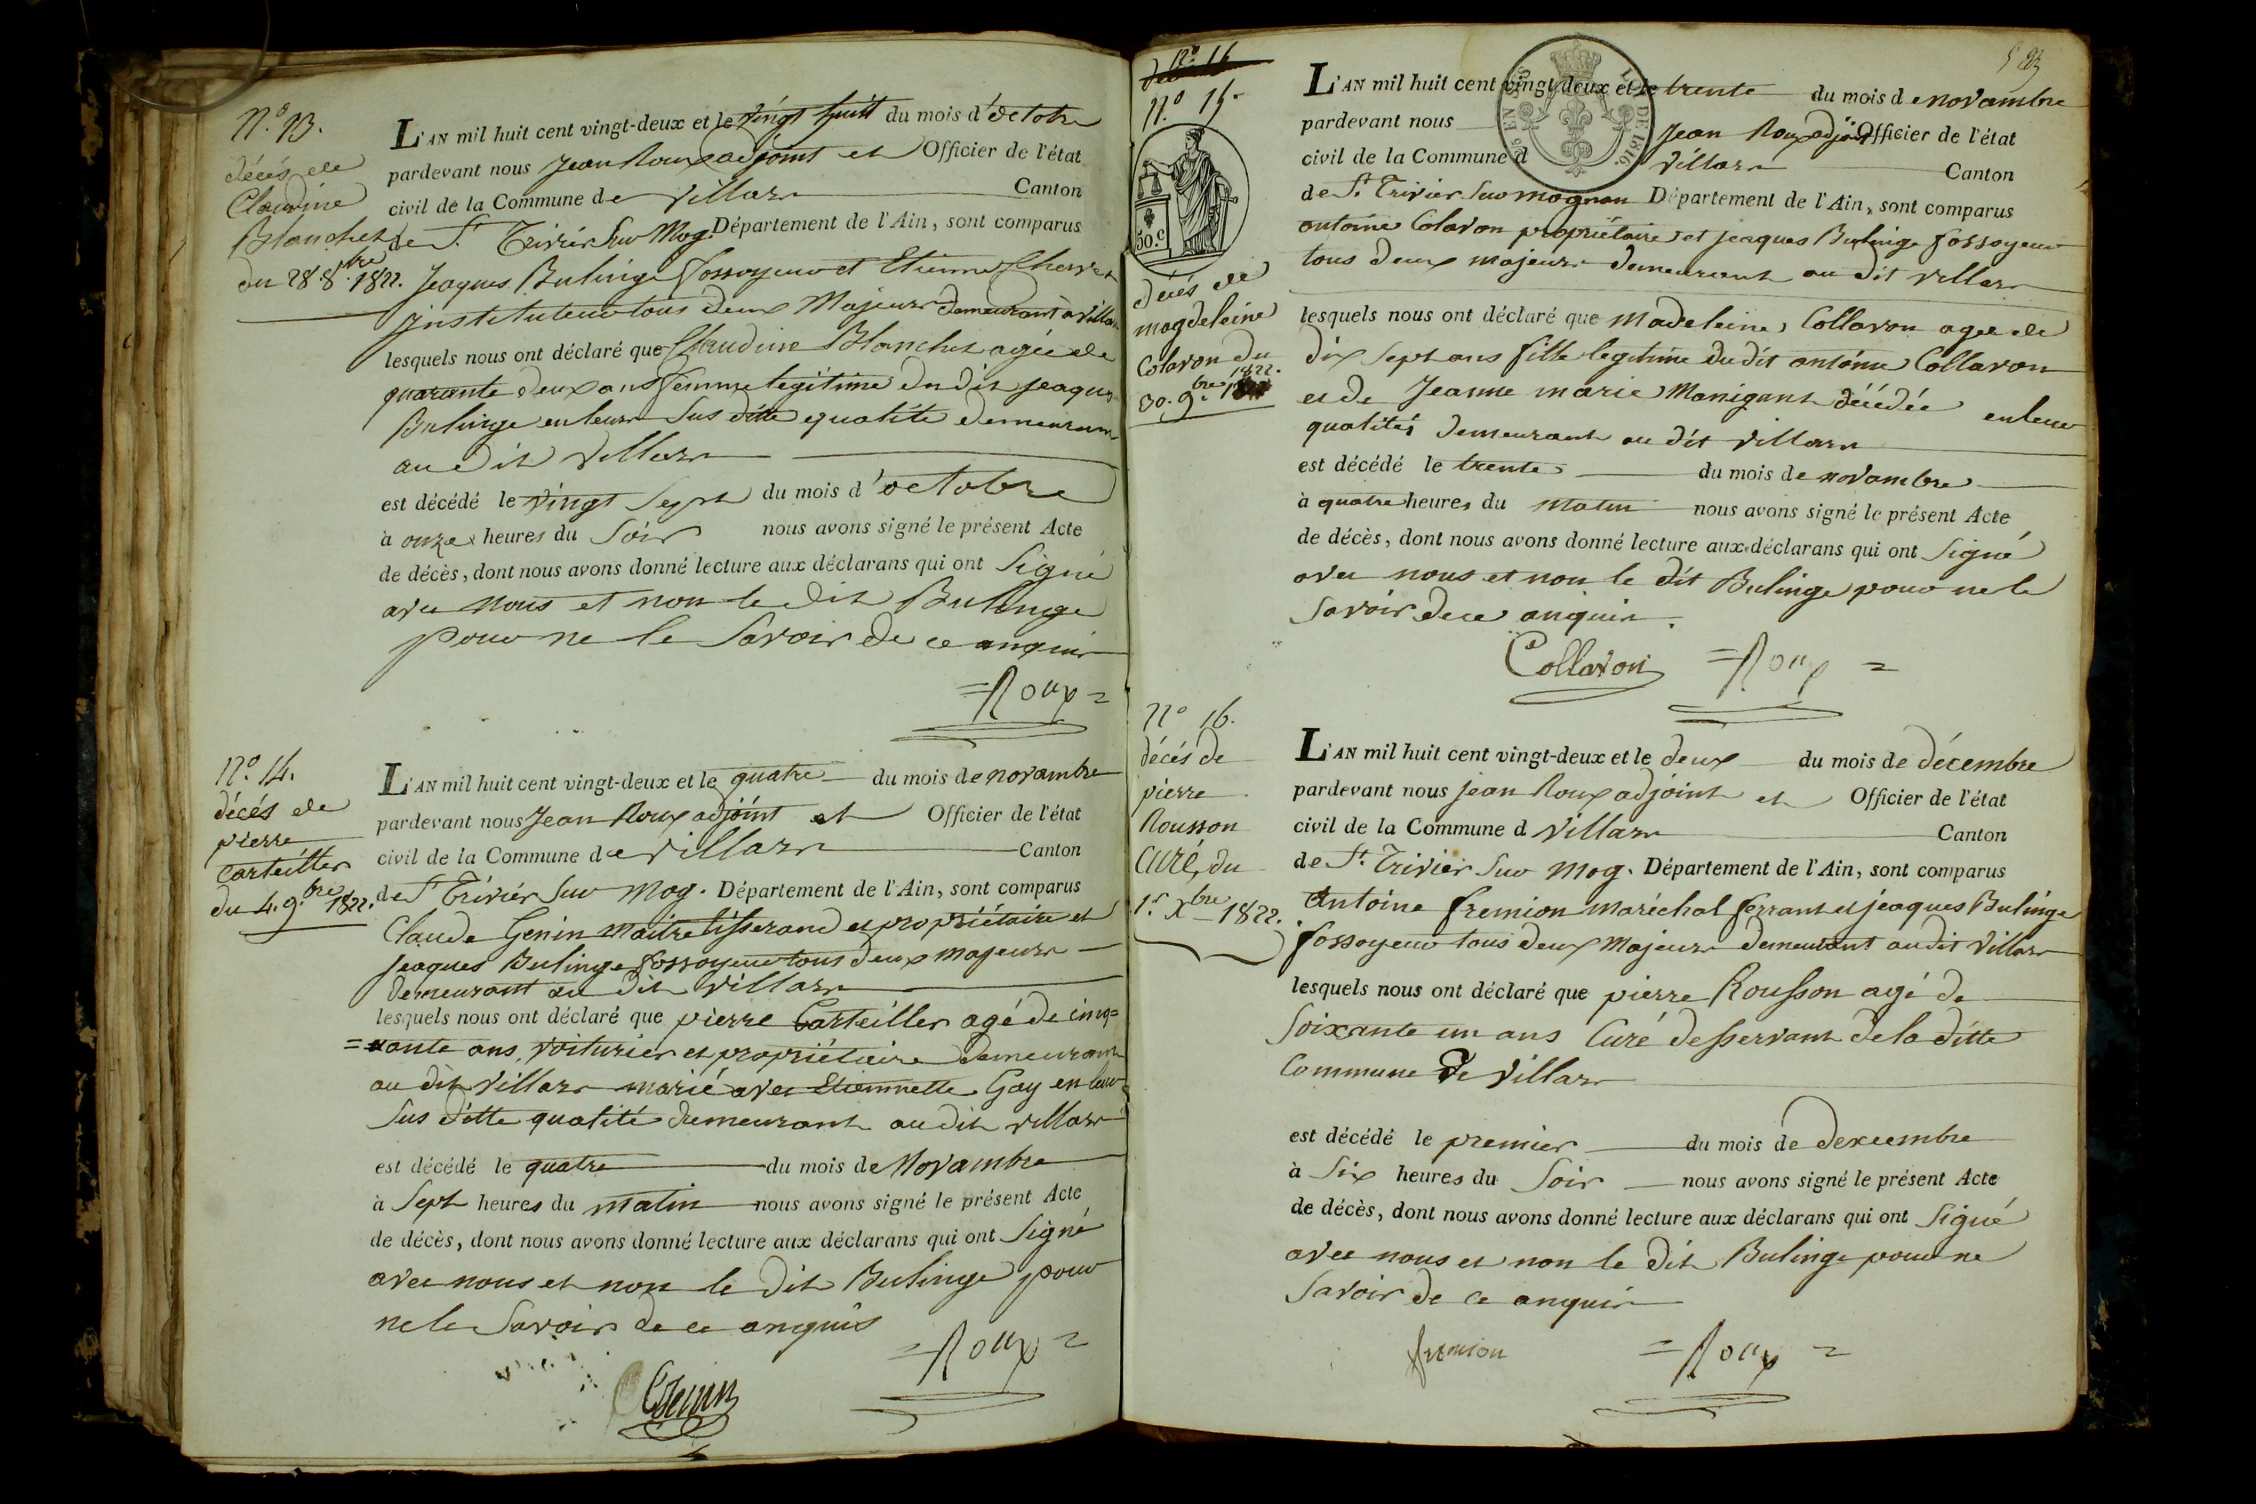 N.º 13.
décés de
Claudine
Blanchet
du 28. 8.bre 1822.
L'AN mil huit cent vingt-deux et le vingt huit du mois d'octobre
pardevant nous Jean Roux adjoint et Officier de l'état
civil de la Commune de Villars Canton
de St Trivier Sur Mog. Département de l'Ain, sont comparus
Jeaques Bulinge fossoyeur et Etienne
instituteur tous deux Majeurs demeurant à Villars
lesquels nous ont déclaré que Claudine Blanchet agée de
quarante deux ans femme legitime du dit jeaques
Bulinge en leurs Sus ditte equalité demeurant
au dit Villars
est décédé le vingt Sept du mois d'octobre
à onze heures du Soir nous avons signé le présent Acte
de décès, dont nous avons donné lecture aux déclarans qui ont Signé
avec nous et non le dit Bulinge
pour ne le Savoir de ce anquis
=Roux=
N.º 14.
décés de
pierre
Carteiller
du 4. 9.bre 1822.
L'AN mil huit cent vingt-deux et le quatre du mois de novambre
pardevant nous Jean Roux adjoint et Officier de l'état
civil de la Commune de Villars Canton
de St Trivier Sur Mog. Département de l'Ain, sont comparus
Claude Genin maitre tisserand et propriétaire et
Jeaques Bulinge fossoyeur tous deux majeurs
demeurant au dit Villars
lesquels nous ont déclaré que pierre Carteiller agé de cinq=
=uante ans, voiturier et propriétaire demeurant
au dit Villars marié avec Etiennette Gay en leur
Sus ditte qualité demeurant au dit Villars
est décédé le quatre du mois de Novambre
à Sept heures du matin nous avons signé le présent Acte
de décès, dont nous avons donné lecture aux déclarans qui ont Signé
avec nous et non le dit Bulinge pour
ne le Savoir de ce anquis
=Roux=
Genin
N.º 15.
50.c
décés de
magdeleine
Colavon du
30. 9.bre 1822.
L'AN mil huit cent vingt-deux et le trente du mois de novambre
pardevant nous Jean Roux adjoint Officier de l'état
civil de la Commune d Villars Canton
de St. Trivier Sur mognan Département de l'Ain, sont comparus
antoine Colavon propriétaire et jeaques Bulinge fossoyeur
tous deux majeurs demeurant au dit villars
lesquels nous ont déclaré que Madeleine Collavon agée de
dix Sept ans fille legitime du dit antoine Collavon
et de Jeanne marie Manigant décédée en leur
qualités demeurant au dit Villars
est décédé le trente du mois de novambre
à quatre heures du matin nous avons signé le présent Acte
de décès, dont nous avons donné lecture aux déclarans qui ont Signé
avec nous et non le dit Bulinge pour ne le
Savoir de ce anquis.
Collavon =Roux=
Nº 16.
décés de
pierre
Rousson
curé, du
1.r Xbre 1822.
L'AN mil huit cent vingt-deux et le deux du mois de décembre
pardevant nous jean Roux adjoint et Officier de l'état
civil de la Commune d Villars Canton
de St. Trivier Sur Mog. Département de l'Ain, sont comparus
Antoine fremion maréchal ferrant et jeaques Bulinge
fossoyeur tous deux Majeurs demeurant audit Villars
lesquels nous ont déclaré que pierre Rousson agé de
Soixante un ans Curé desservant de la ditte
Commune De Villars
est décédé le premier du mois de dexcembre
à Six heures du Soir nous avons signé le présent Acte
de décès, dont nous avons donné lecture aux déclarans qui ont Signé
avec nous et non le dit Bulinge pour ne
Savoir de ce anquis
fremion =Roux=